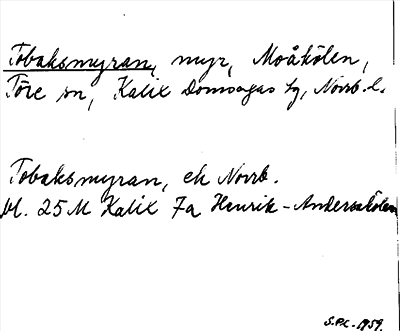 Tobaksmyran, myr, Moåkölen,
Töre sn, Kalix Domsagas tg, Norrb. l.
Tobaksmyran, ek Norrb.
bl. 25 M Kalix 7a Henrik-Anderskölen
S.P.L. 1959.